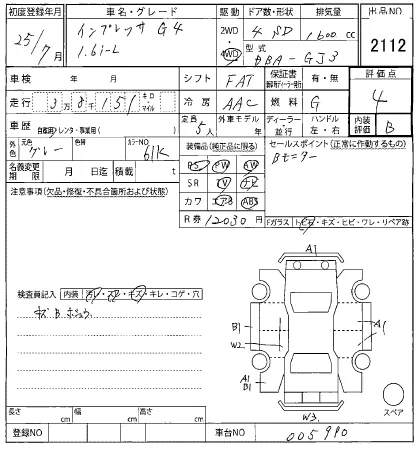 初度登録年月 車名・グレード 駆動 ドア数・形状 排気量 出品NO
25/7月 インプレッサ G4 2WD 4 SD 1.600 cc 2112
1.6i-L 4WD 型式 DBA-GJ3
車検 年 月 シフト FAT 保証書 有・無 評価点
走行 3万8千151 キロ マイル 冷房 AAC 燃料 G 4
車歴 自家用・レンタ・事業用( ) 定員 5人 外車モデル 年 ディーラー・並行 ハンドル 左・右 内装評価 B
外色 元色 グレー 色替 カラーNO 61K 装備品(純正品に限る) セールスポイント(正常に作動するもの)
名義変更期限 月 日迄 積載 t PS PW AW Bモニター
注意事項(欠品・修復・不具合箇所および状態) SR TV ナビ
カワ エアB ABS
R券 12030円 Fガラス トビ石・キズ・ヒビ・ワレ・リペア跡
A1
検査員記入 内装 汚レ・スレ・キズ・キレ・コゲ・穴
キズ B ホシュウ
B1 A1
W2
A1
B1
W3
スペア
長さ cm 幅 cm 高さ cm
登録NO 車台NO 005990